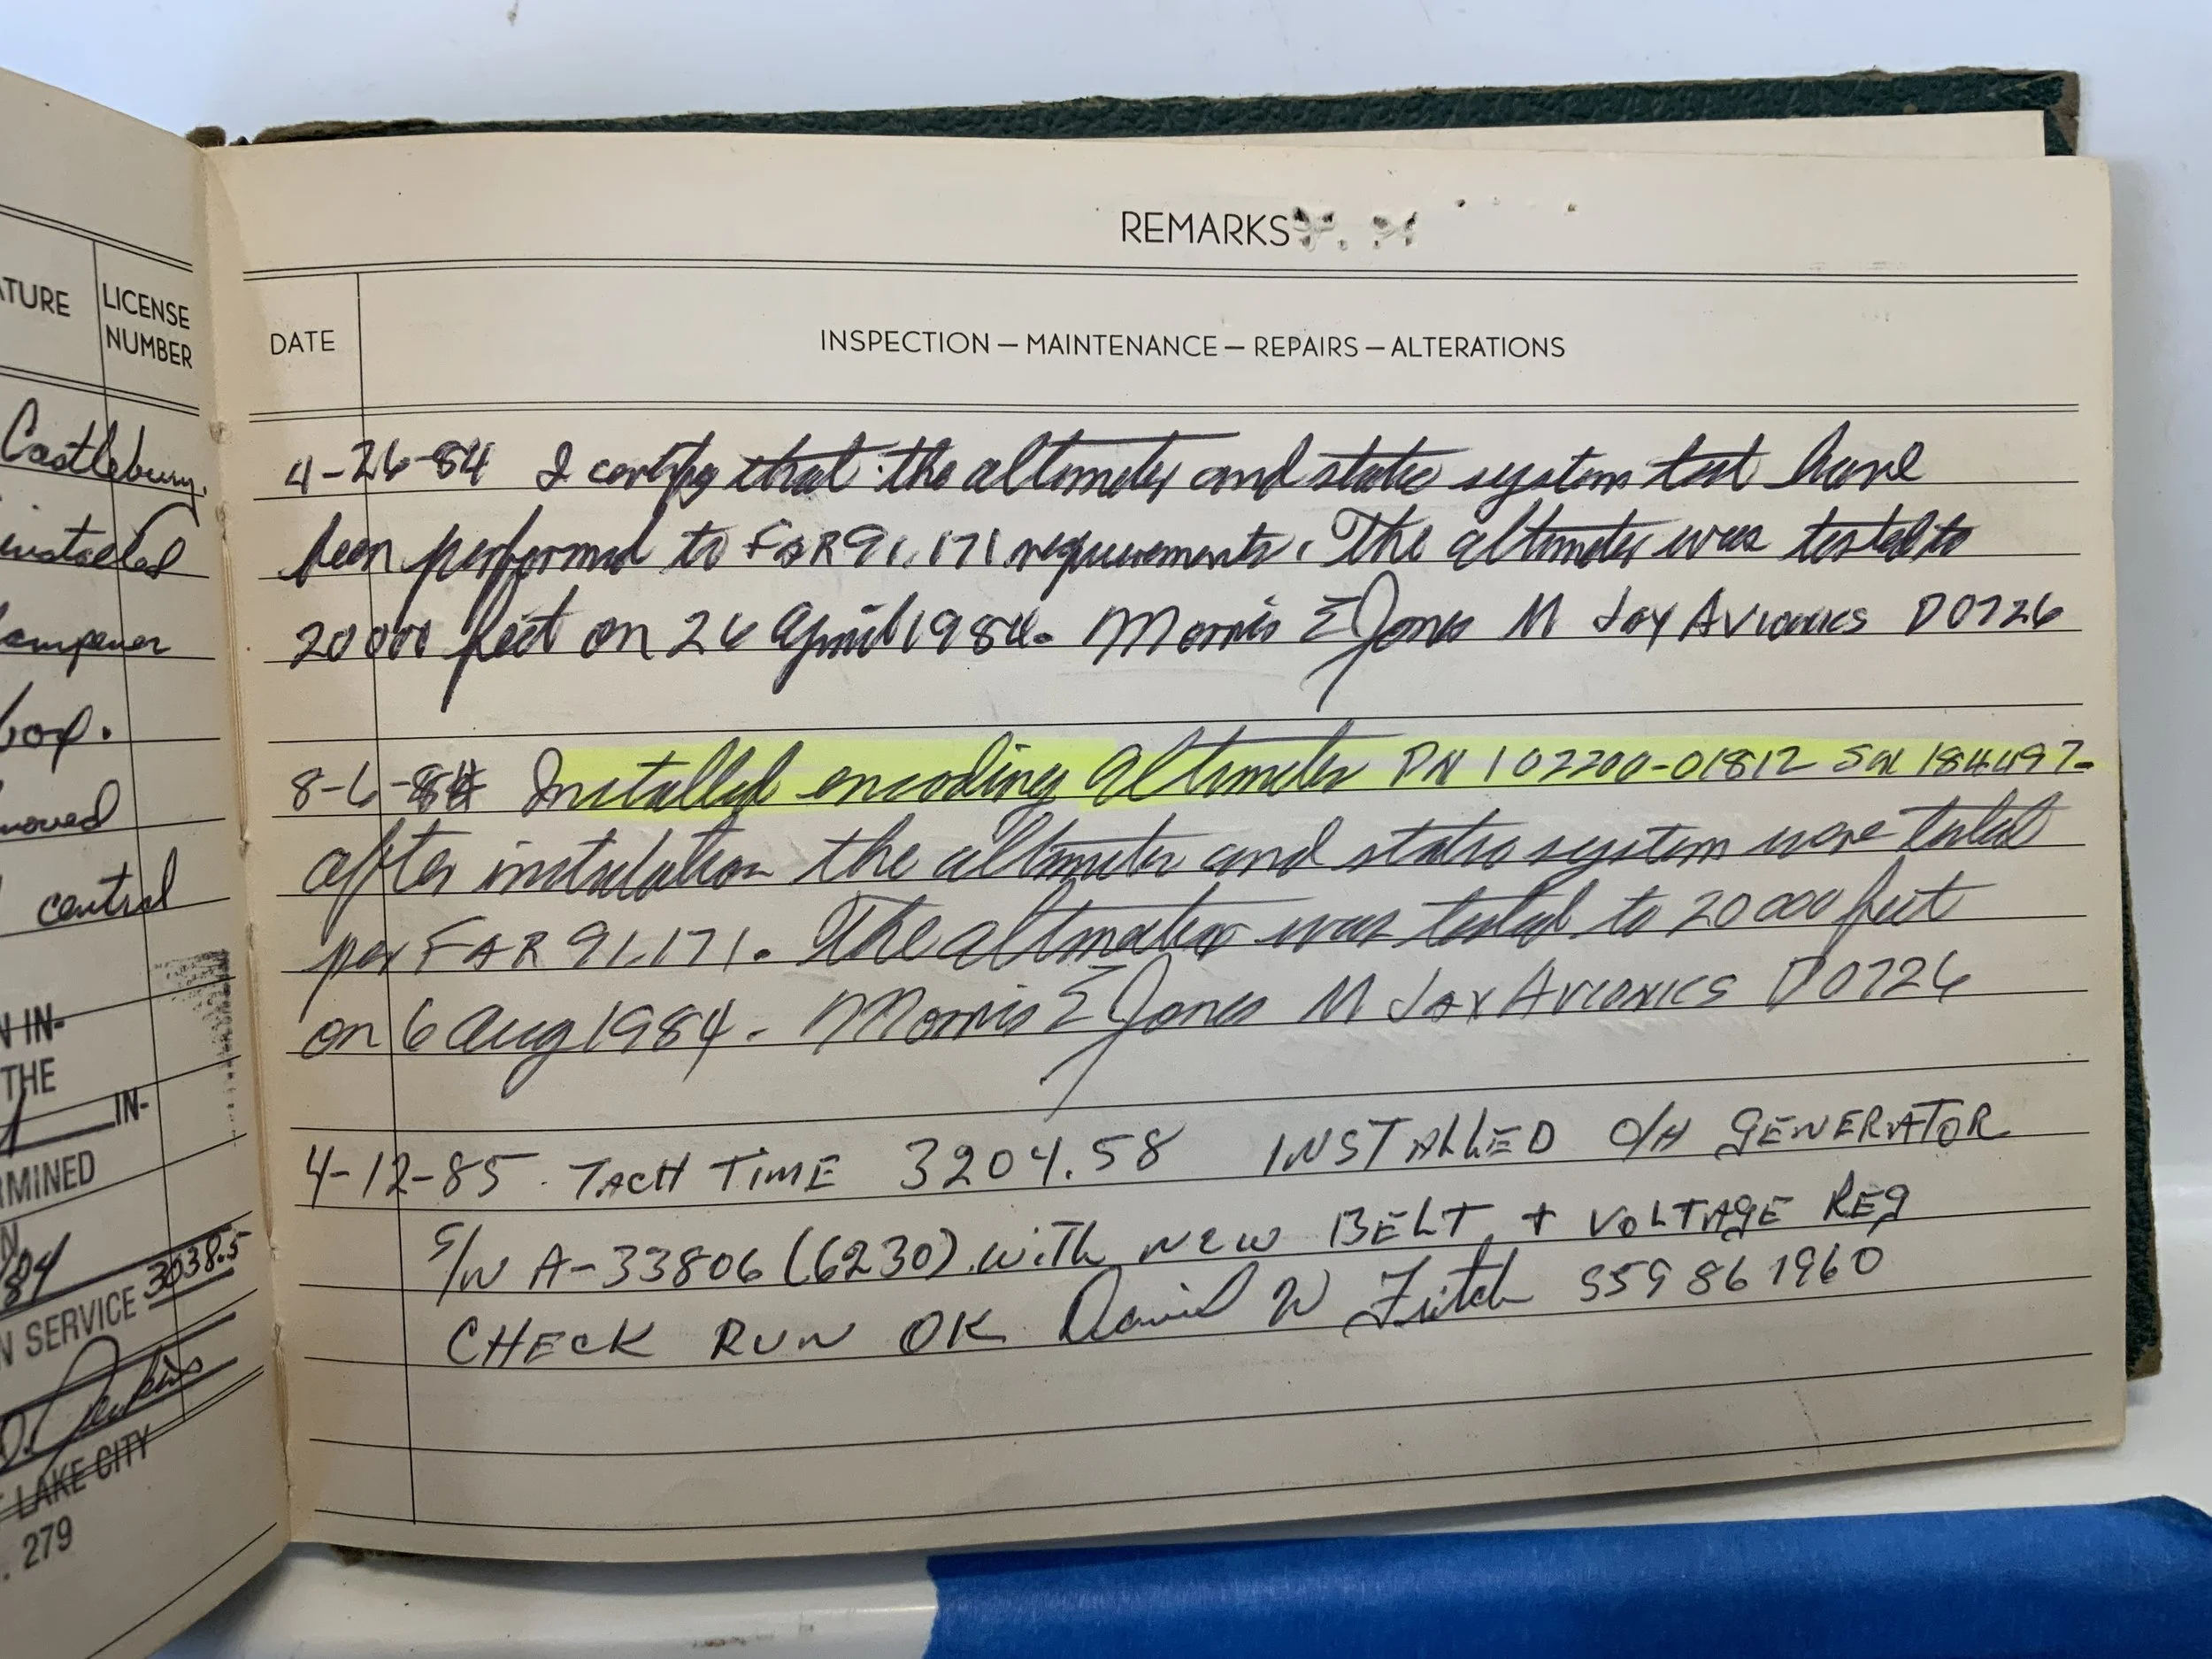 TURE
LICENSE
NUMBER
Castlebury.
installed
dampener
box.
moved
central
N IN-
THE
IN-
RMINED
N
/84
N SERVICE 3038.5
D. Jenkins
LAKE CITY
. 279
REMARKS
DATE
INSPECTION — MAINTENANCE — REPAIRS — ALTERATIONS
4-26-84 I certify that the altimeter and static system test have
been performed to FAR 91.171 requirements. The altimeter was tested to
20000 feet on 26 April 1984. Morris E Jones M Jay Avionics D0726
8-6-84 Installed encoding altimeter PN 102200-01812 SN 184497.
after instulation the altimeter and static system were tested
per FAR 91.171. The altimeter was tested to 20000 feet
on 6 Aug 1984. Morris E Jones M Jay Avionics D0726
4-12-85. TACH TIME 3204.58 INSTALLED O/H GENERATOR
S/N A-33806 (6230) with NEW BELT + VOLTAGE REG
CHECK RUN OK David W Fitch 559861960